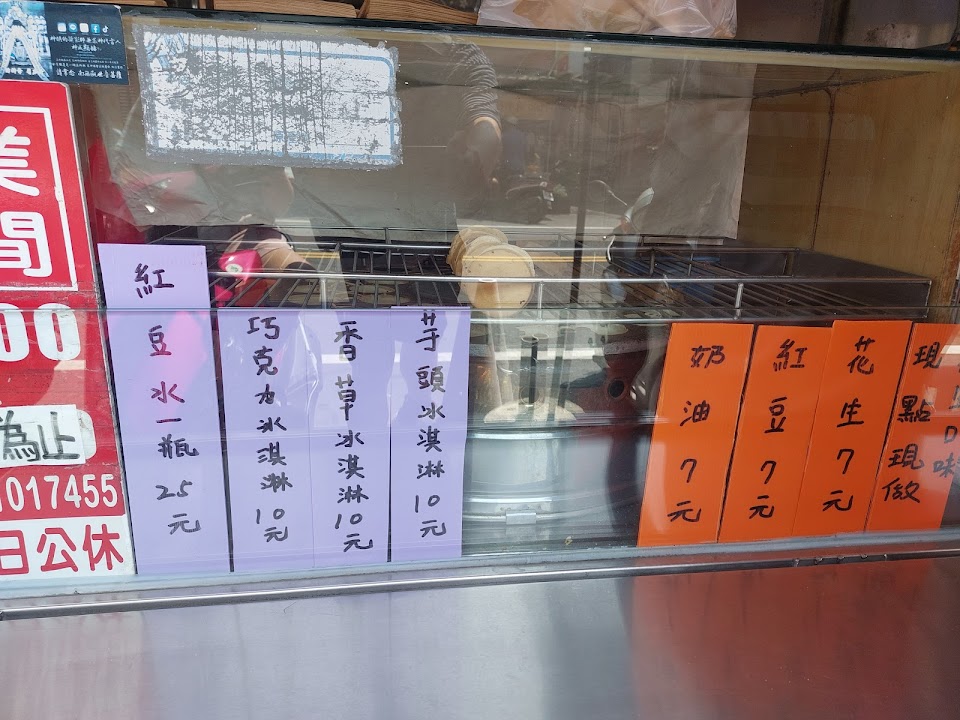 美
間
00
為止
1017455
日公休
紅豆水一瓶25元
巧克力冰淇淋10元
香草冰淇淋10元
芋頭冰淇淋10元
奶油7元
紅豆7元
花生7元
現點現做
口味